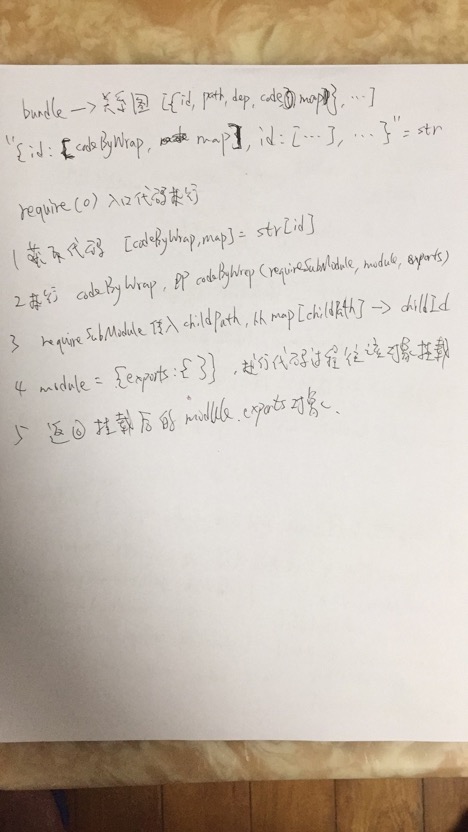 bundle → 关系图 [{id, path, dep, code, map}, …]
"{id: [codeByWrap, map], id: […], …}" = str
require(0) 入口代码执行
1 获取代码 [codeByWrap, map] = str[id]
2 执行 codeByWrap, 即 codeByWrap(requireSubModule, module, exports)
3 requireSubModule 传入 childPath, 从 map[childPath] → childId
4 module = {exports: {}}, 执行代码过程往该对象挂载
5 返回挂载后的 module.exports 对象.